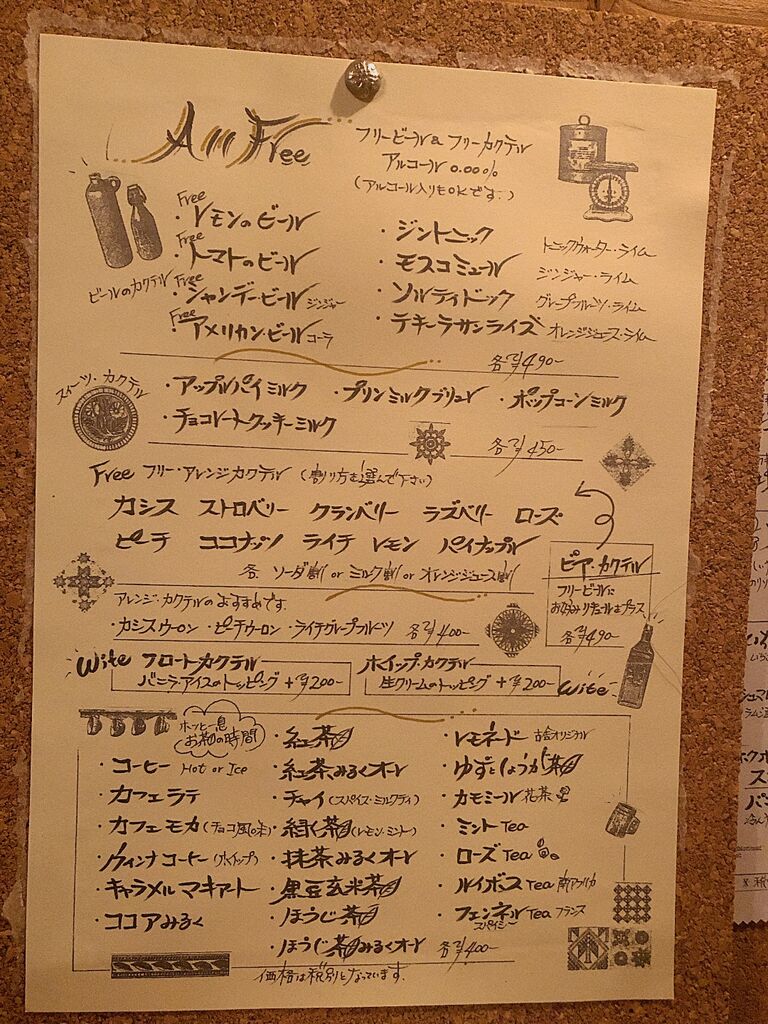 All Free
フリービール& フリーカクテル
アルコール 0.00%
(アルコール入りもOKです。)
ビールのカクテル
Free ・レモンのビール
Free ・トマトのビール
Free ・シャンデービール ジンジャー
Free ・アメリカンビール コーラ
・ジントニック トニックウォーター・ライム
・モスコミュール ジンジャー・ライム
・ソルティドック グレープフルーツ・ライム
・テキーラサンライズ オレンジジュース・ライム
各¥490-
スイーツ・カクテル
・アップルパイミルク ・プリンミルクブリュレ ・ポップコーンミルク
・チョコレートクッキーミルク
各¥450-
Free フリー・アレンジカクテル (割り方を選んで下さい)
カシス ストロベリー クランベリー ラズベリー ローズ
ピーチ ココナッツ ライチ レモン パイナップル
各 ソーダ割 or ミルク割 or オレンジジュース割
アレンジ・カクテルのおすすめです。
・カシスウーロン ・ピーチウーロン ・ライチグレープフルーツ 各¥400-
ビア・カクテル
フリービールに
お好みリキュールをプラス
各¥490-
Wite フロートカクテル
バニラアイスのトッピング +¥200-
ホイップ・カクテル
生クリームのトッピング +¥200- Wite
ホッと一息
お茶の時間
・コーヒー Hot or Ice
・カフェラテ
・カフェモカ (チョコ風味)
・ウィンナコーヒー (ホイップ)
・キャラメルマキアート
・ココアみるく
・紅茶
・紅茶みるくオーレ
・チャイ (スパイス・ミルクティ)
・緑茶 (レモン・ミント)
・抹茶みるくオーレ
・黒豆玄米茶
・ほうじ茶
・ほうじ茶みるくオーレ
・レモネード 古舎オリジナル
・ゆずとしょうが茶
・カモミール花茶
・ミントTea
・ローズTea
・ルイボスTea 南アフリカ
・フェンネルTea フランス
スパイシー
各¥400-
価格は税別となっています。